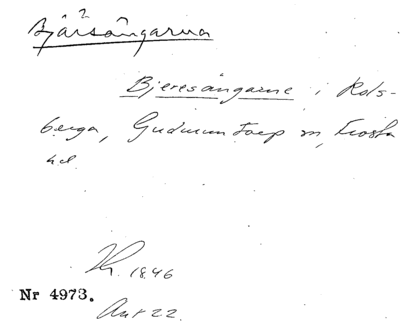 Bjärsångarna
Bjeresångarne i Rols-
berga, Gudmuntorp sn, Frosta
hd.
1846
Nr 4973.
Ant 22.